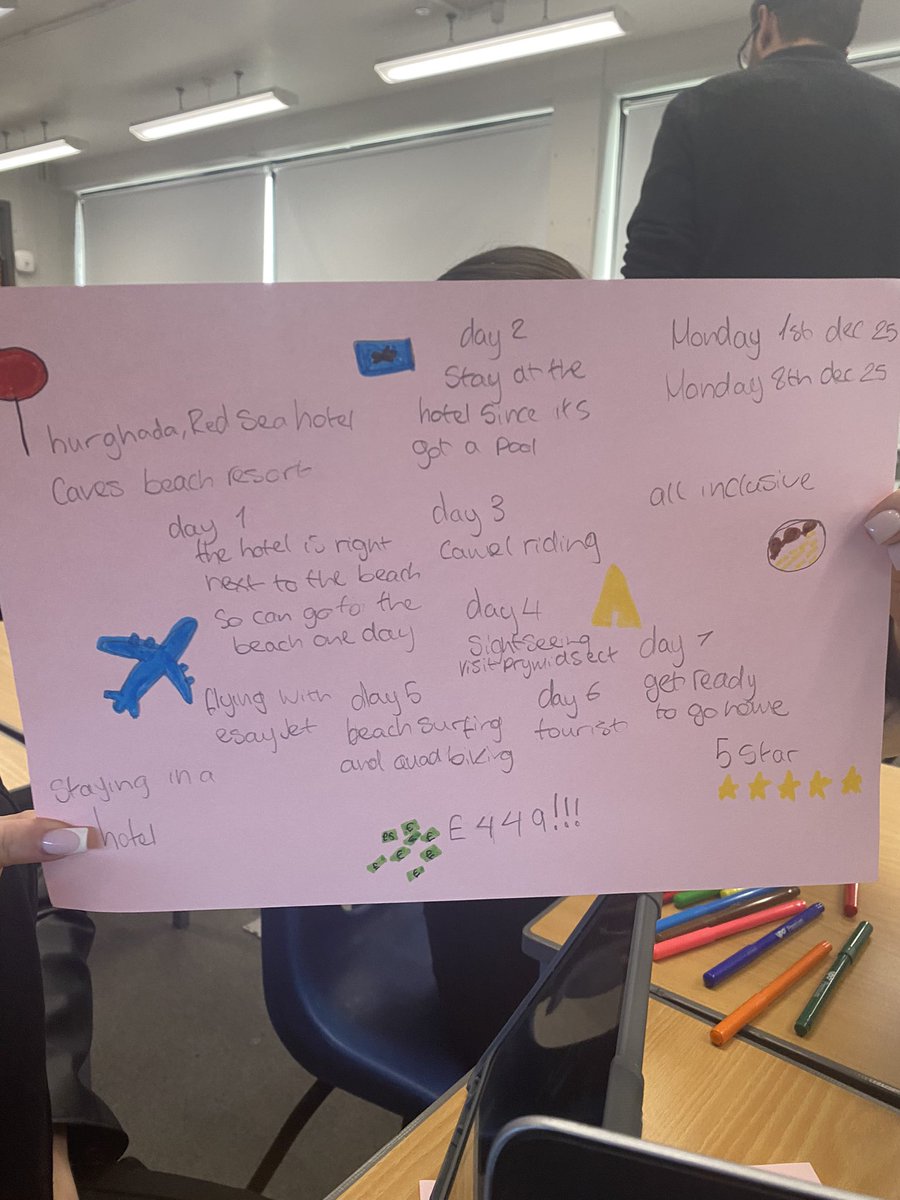 hurghada, Red Sea hotel
Caves beach resort
day 1
the hotel is right
next to the beach
so can go to the
beach one day
flying with
esayJet
Staying in a
hotel
day 2
Stay at the
hotel Since it's
got a pool
day 3
camel riding
day 4
Sightseeing
visit prymidsect
day 5
beach surfing
and quad biking
day 6
tourist
£449!!!
Monday 1st dec 25
Monday 8th dec 25
all inclusive
day 7
get ready
to go home
5 star